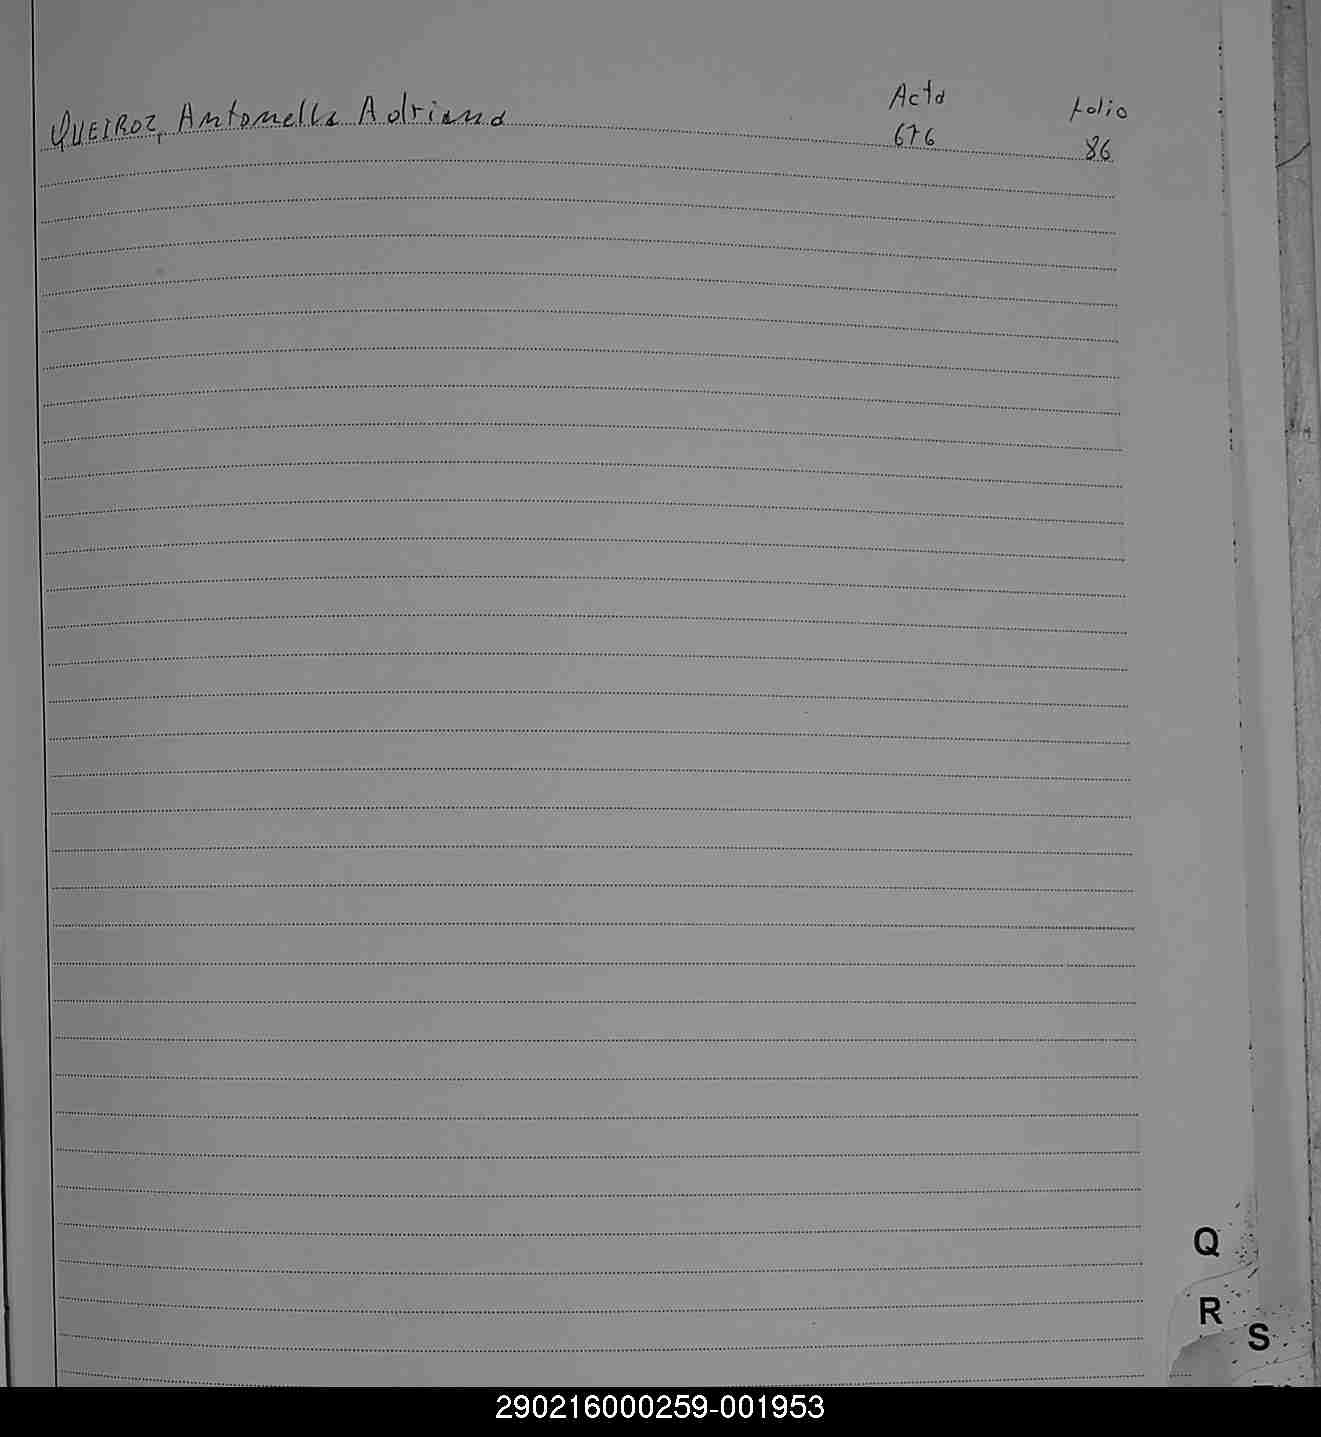 Acta Folio
QUEIROZ, Antonella Adriana 676 86
Q
R
S
290216000259-001953